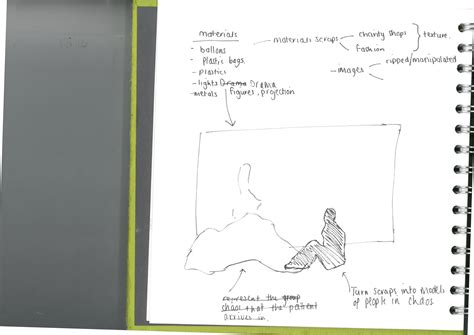 materials
- ballons
- Plastic bags
- plastics
- lights Drama Drama
- metals figures, projection
materials scraps
charity shops
Fashion
texture.
- images
ripped/manipulated
represent the group
chaos that the patient
arrives in.
Turn scraps into models
of people in chaos